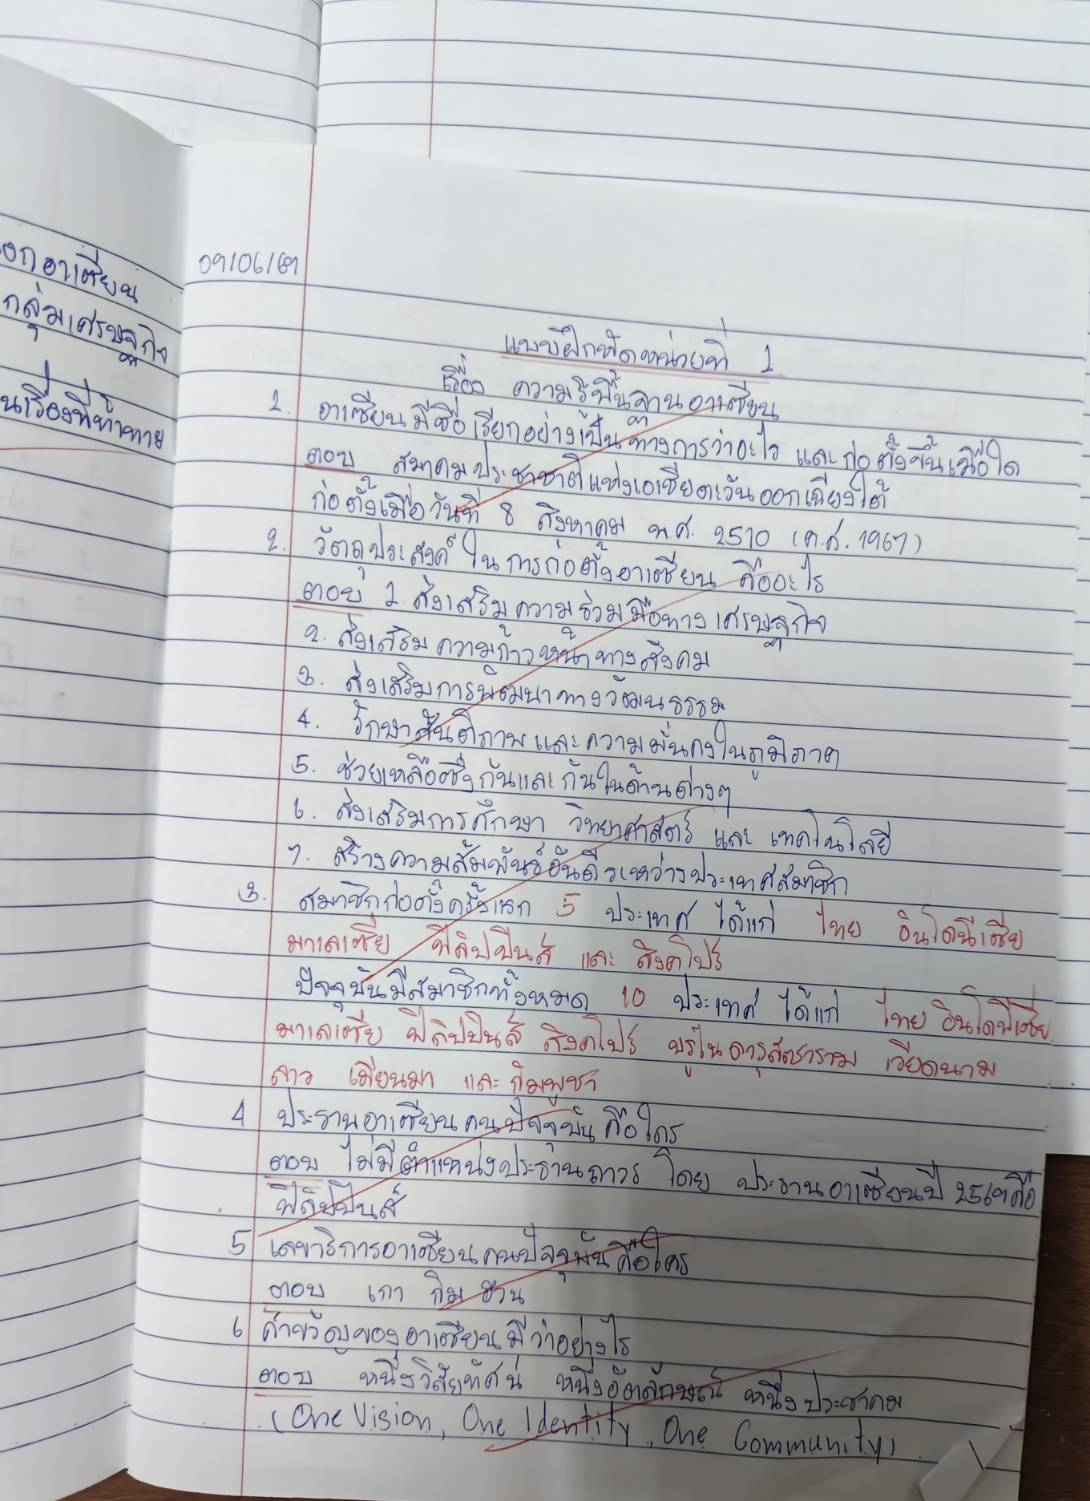 อกอาเซียน
กลุ่มเศรษฐกิจ
นเรื่องที่ท้าทาย
09/06/69
แบบฝึกหัดหน่วยที่ 1
เรื่อง ความรู้พื้นฐานอาเซียน
1. อาเซียนมีชื่อเรียกอย่างเป็นทางการว่าอะไร และก่อตั้งขึ้นเมื่อใด
ตอบ สมาคมประชาชาติแห่งเอเชียตะวันออกเฉียงใต้
ก่อตั้งเมื่อวันที่ 8 สิงหาคม พ.ศ. 2510 (ค.ศ. 1967)
2. วัตถุประสงค์ในการก่อตั้งอาเซียน คืออะไร
ตอบ 1. ส่งเสริมความร่วมมือทางเศรษฐกิจ
2. ส่งเสริมความก้าวหน้าทางสังคม
3. ส่งเสริมการพัฒนาทางวัฒนธรรม
4. รักษาสันติภาพและความมั่นคงในภูมิภาค
5. ช่วยเหลือซึ่งกันและกันในด้านต่างๆ
6. ส่งเสริมการศึกษา วิทยาศาสตร์ และ เทคโนโลยี
7. สร้างความสัมพันธ์อันดีระหว่างประเทศสมาชิก
3. สมาชิกก่อตั้งครั้งแรก 5 ประเทศ ได้แก่ ไทย อินโดนีเซีย
มาเลเซีย ฟิลิปปินส์ และ สิงคโปร์
ปัจจุบันมีสมาชิกทั้งหมด 10 ประเทศ ได้แก่ ไทย อินโดนีเซีย
มาเลเซีย ฟิลิปปินส์ สิงคโปร์ บรูไนดารุสซาราม เวียดนาม
ลาว เมียนมา และ กัมพูชา
4 ประธานอาเซียนคนปัจจุบันคือใคร
ตอบ ไม่มีตำแหน่งประธานถาวร โดย ประธานอาเซียนปี 2569คือ
ฟิลิปปินส์
5 เลขาธิการอาเซียนคนปัจจุบันคือใคร
ตอบ เกา กิม ฮวน
6 คำขวัญของอาเซียนมีว่าอย่างไร
ตอบ หนึ่งวิสัยทัศน์ หนึ่งอัตลักษณ์ หนึ่งประชาคม
(One Vision, One Identity, One Community)